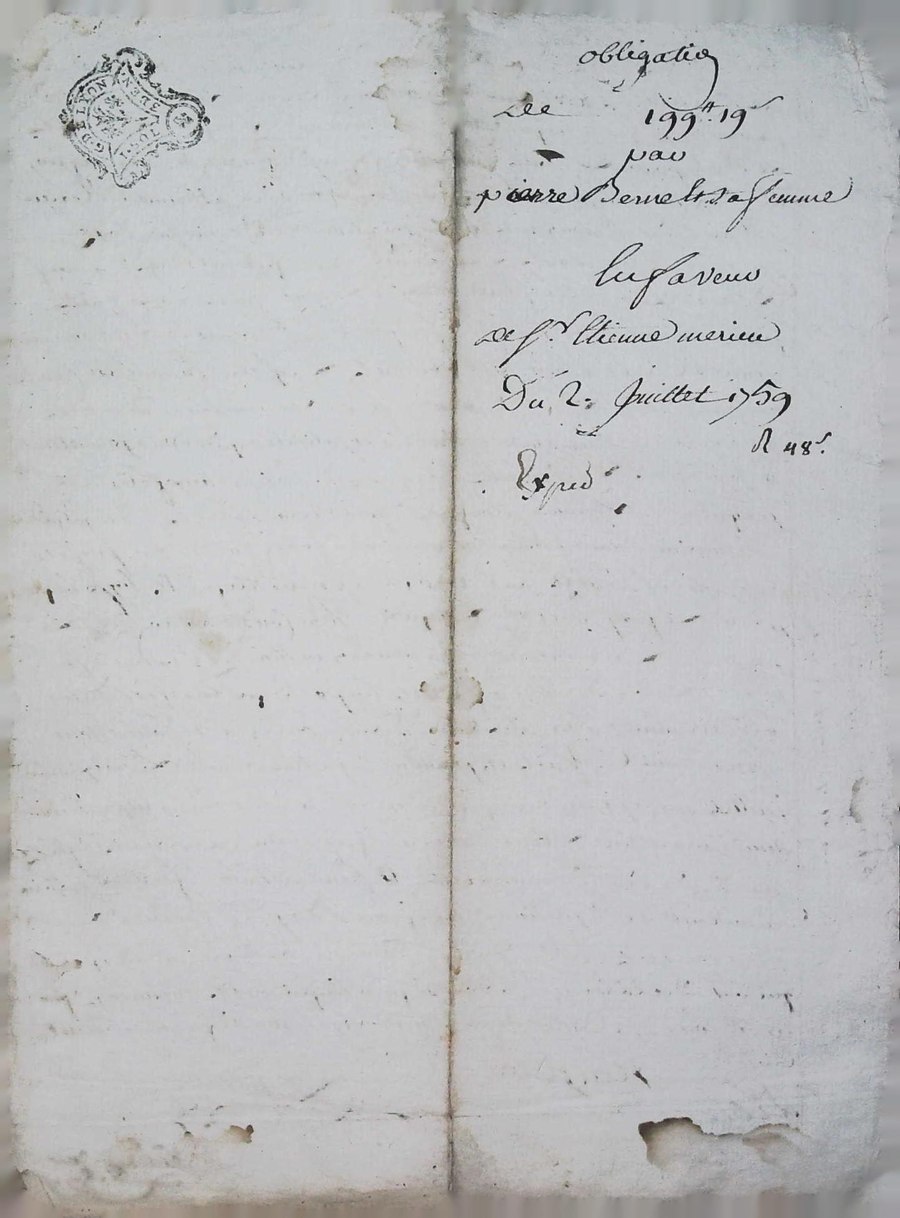 obligation
De 199 ₶ 19 s
par
pierre Berne et sa femme
En faveur
de Sr. Etienne merieu
Du 2e Juillet 1759
R 48 s.
Expié
G. DE LYON